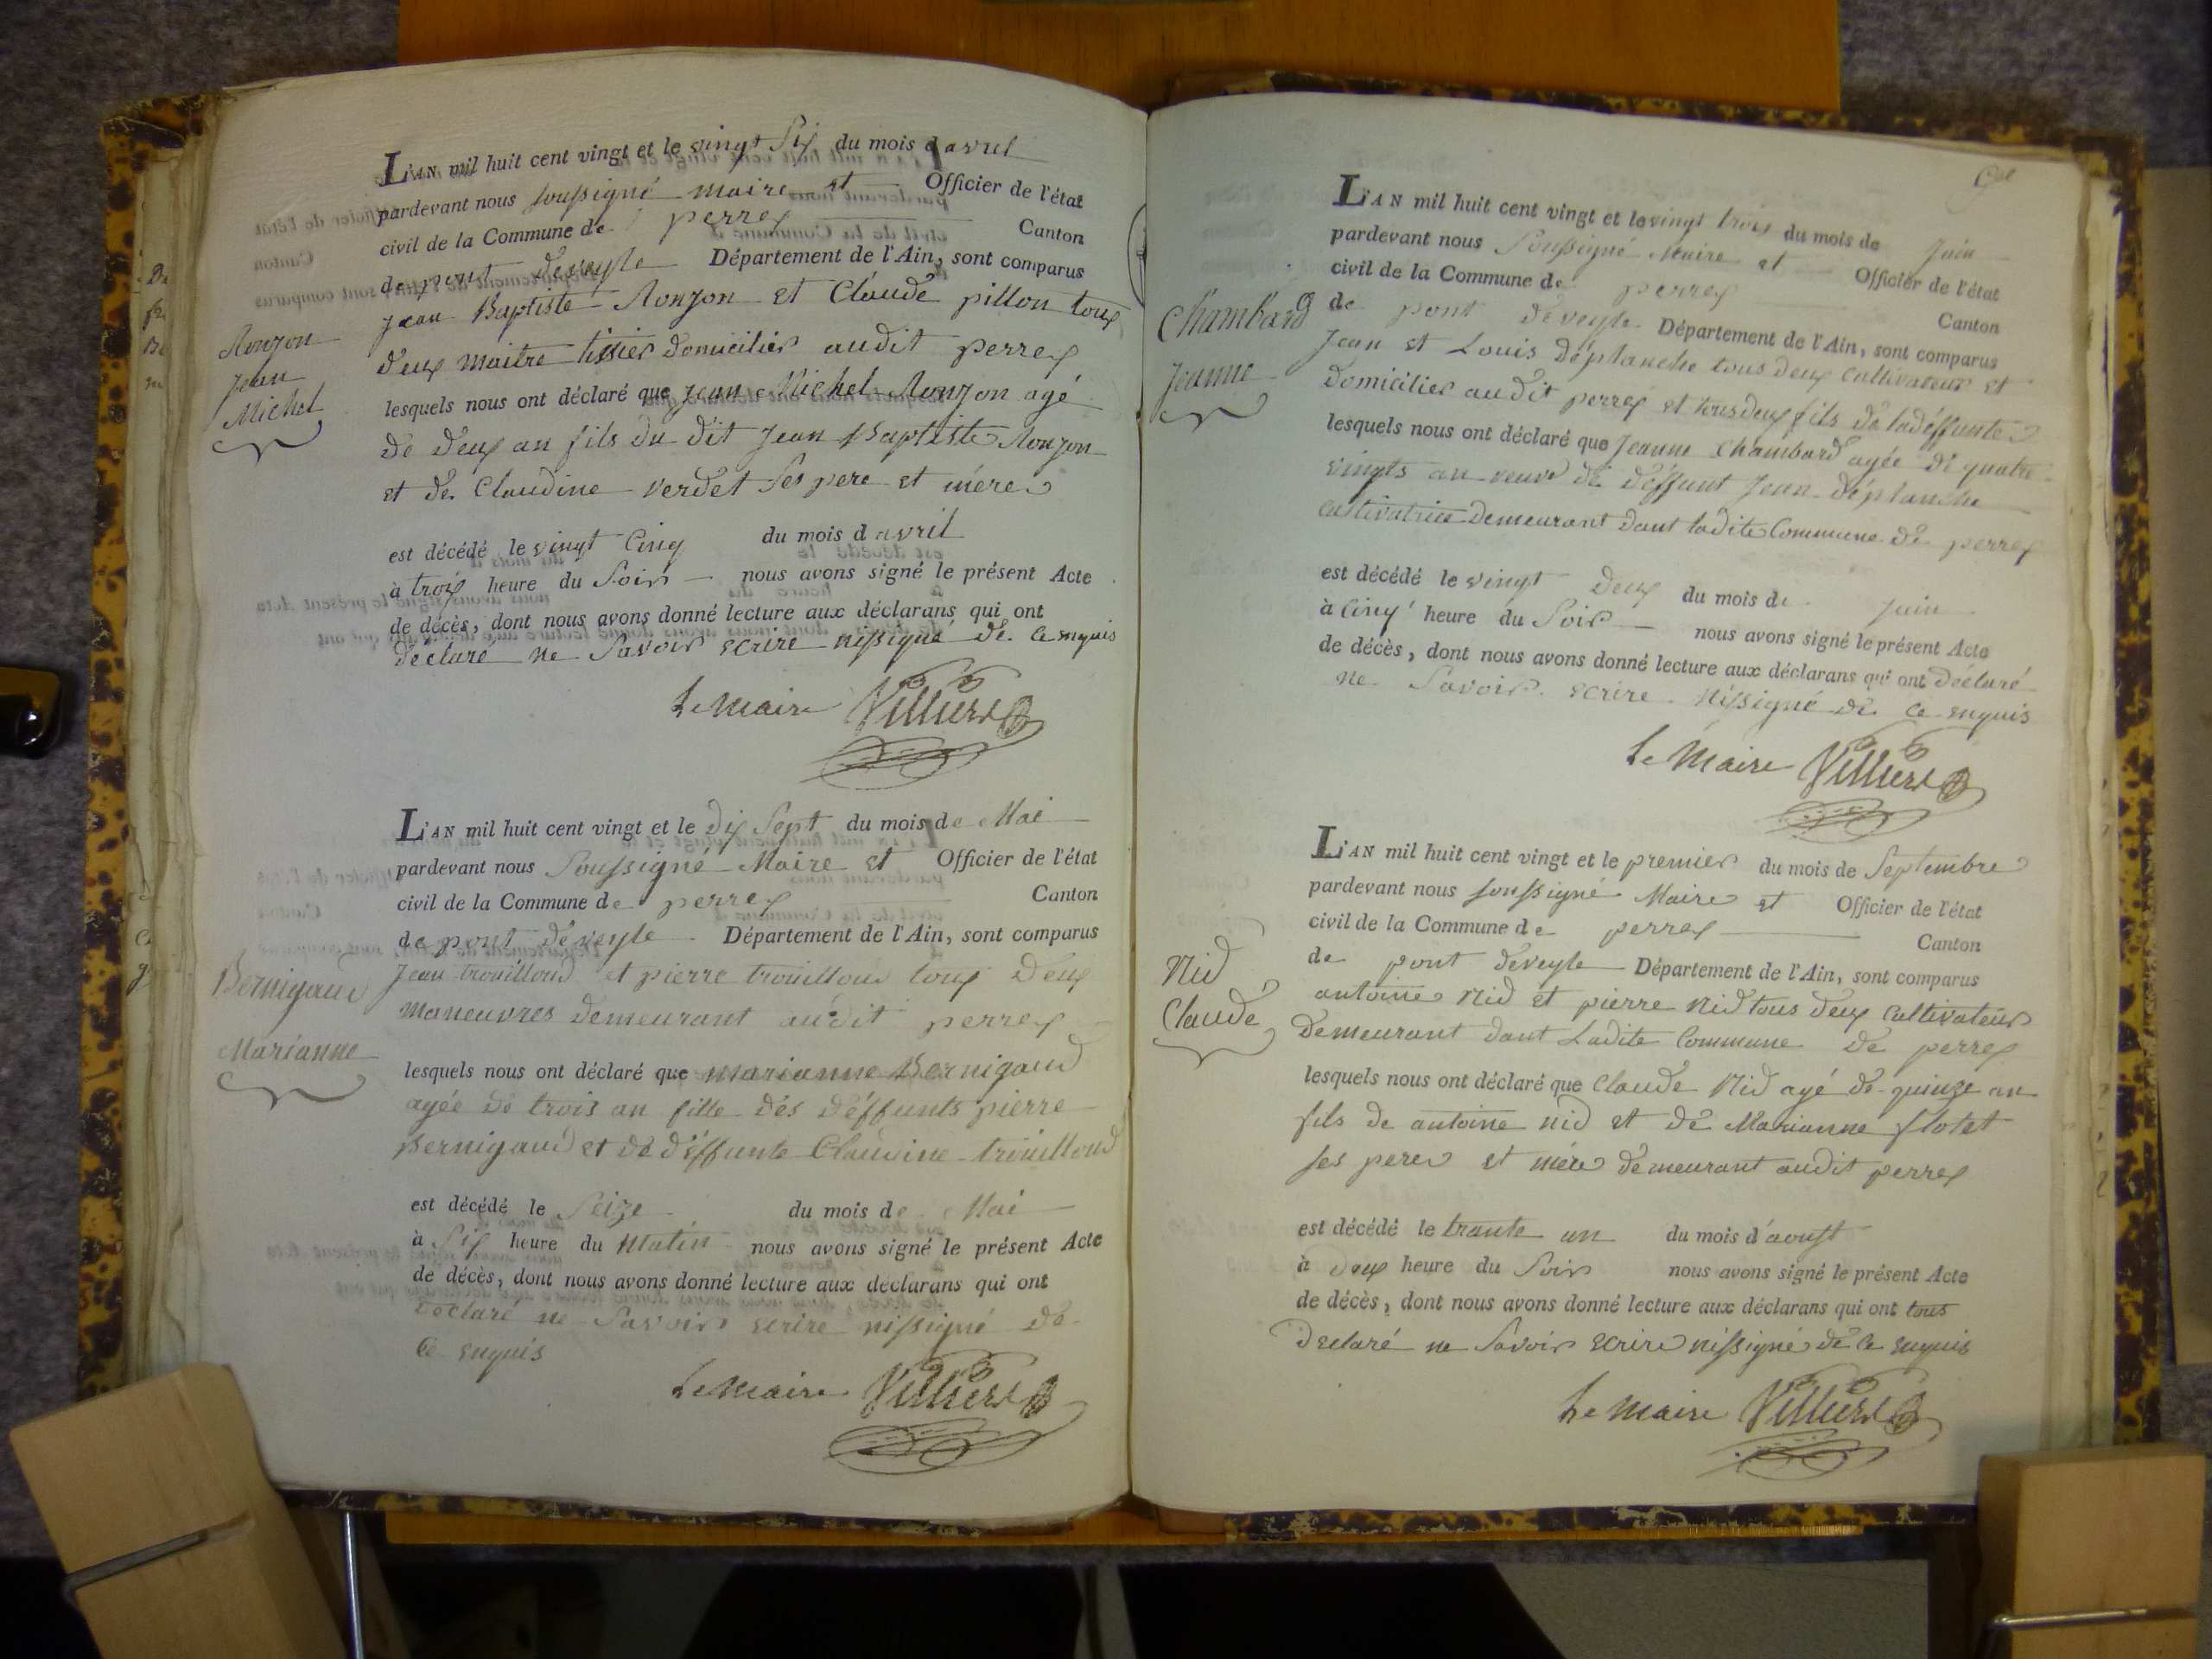 L'AN mil huit cent vingt et le vingt Six du mois d avril
pardevant nous soussigné maire et Officier de l'état
civil de la Commune de perrex Canton
de pont deveyle Département de l'Ain, sont comparus
jean Baptiste Ronjon et Claude pillon tous
deux maitre tissier domicilier audit perrex
lesquels nous ont déclaré que jean Michel Ronjon agé
de deux an fils du dit jean Baptiste Ronjon
et de Claudine verdet ses pere et mére
est décédé le vingt Cinq du mois d avril
à trois heure du Soir nous avons signé le présent Acte
de décès, dont nous avons donné lecture aux déclarans qui ont
déclaré ne Savoir ecrire nissigné de ce enquis
Le maire Villiers
Ronjon
jean
Michel
L'AN mil huit cent vingt et le dix Sept du mois de Mai
pardevant nous Soussigné Maire et Officier de l'état
civil de la Commune de perrex Canton
de pont déveyle Département de l'Ain, sont comparus
jean trouilloud et pierre trouilloud tous deux
maneuvres demeurant audit perrex
lesquels nous ont déclaré que marianne Bernigaud
agée de trois an fille dés déffunts pierre
Bernigaud et de déffunte Claudine trouilloud
est décédé le Seize du mois de Mai
à Six heure du Matin nous avons signé le présent Acte
de décès, dont nous avons donné lecture aux déclarans qui ont
declaré ne Savoir ecrire nissigné de
ce enquis
Le maire Villiers
Bernigaud
Marianne
L'AN mil huit cent vingt et le vingt trois du mois de juin
pardevant nous Soussigné Maire et Officier de l'état
civil de la Commune de perrex Canton
de pont deveyle Département de l'Ain, sont comparus
jean et Louis déplanche tous deux cultivateur et
domicilier audit perrex et tous deux fils de ladéffunte
lesquels nous ont déclaré que jeanne Chambard agée de quatre
vingts an veuve de déffunt jean déplanche
cultivatrice demeurant dant ladite Commune de perrex
est décédé le vingt deux du mois de juin
à Cinq heure du Soir nous avons signé le présent Acte
de décès, dont nous avons donné lecture aux déclarans qui ont déclaré
ne Savoir ecrire nissigné de ce enquis
Le Maire Villiers
Chambard
jeanne
L'AN mil huit cent vingt et le premier du mois de Septembre
pardevant nous soussigné Maire et Officier de l'état
civil de la Commune de perrex Canton
de pont deveyle Département de l'Ain, sont comparus
antoine nid et pierre nid tous deux cultivateur
demeurant dant Ladite Commune de perrex
lesquels nous ont déclaré que Claude Nid agé de quinze an
fils de antoine nid et de Marianne flotet
ses peres et mére demeurant audit perrex
est décédé le trante un du mois d'aoust
à deux heure du Soir nous avons signé le présent Acte
de décès, dont nous avons donné lecture aux déclarans qui ont tous
declaré ne Savoir ecrire nissigné de ce enquis
Le maire Villiers
Nid
Claude